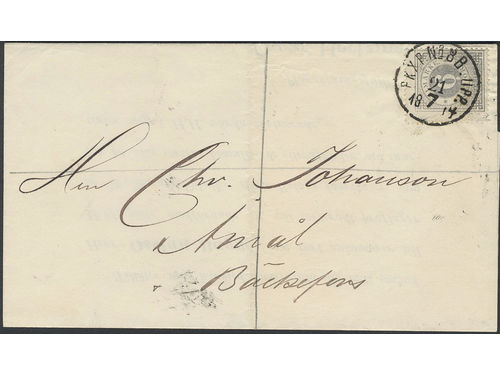 PKXP Nº 8 B UPP.
21
7
18 74
6
Herr Chr. Johanson
Åmål
Bäckefors